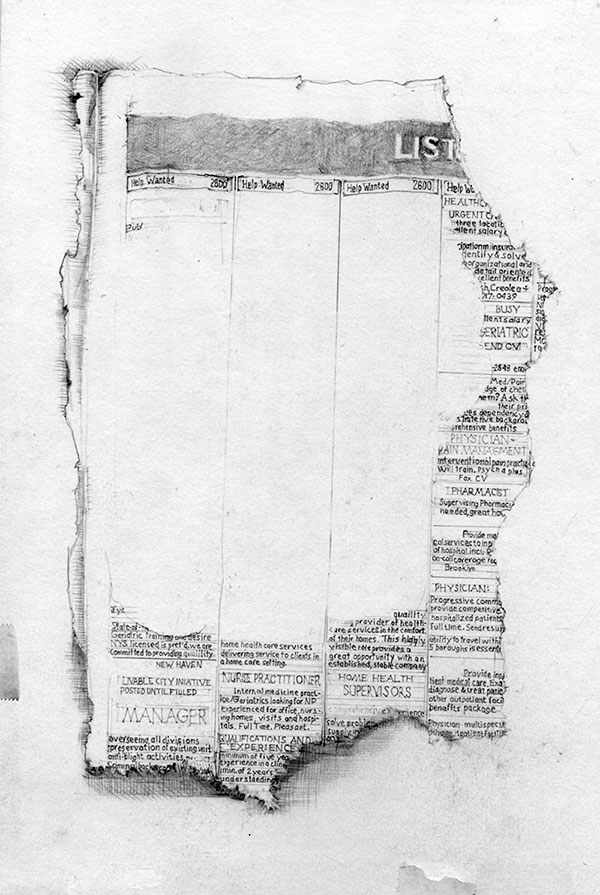 LIST
Help Wanted 2600
Help Wanted 2600
Help Wanted 2600
Help
Geriatric Training and desire
NYS licensed is pref'd, we are
committed to providing quality.
NEW HAVEN
LIVABLE CITY INIATIVE
POSTED UNTIL FILLED
MANAGER
overseeing all divisions
preservation of existing unit
anti-blight activities,
home health care services
delivering service to clients in
a home care setting.
NURSE PRACTITIONER
Internal medicine pract-
ice/Geriatrics looking for NP
experienced for office, nurs-
ing homes, visits and hospi-
tals. Full Time. Pleasant.
QUALIFICATIONS AND
EXPERIENCE
minimum of five yea
experience in a clin
(min. of 2 years
understanding
quality
provider of health-
care services in the comfort
of their homes. This highly
visible role provides a
great opportunity with an
established, stable company
HOME HEALTH
SUPERVISORS
solve problem
HEALTHC
URGENT C
three locatio
ellent salary
dentify & solve
organizational and
detail oriented
cellent benefits
ch Creole a +
917-0439
BUSY
llent salary
GERIATRIC
SEND CV
-2848
Med/Pain
dge of ches
them? Ask th
their pri
yes dependency a
strative backgrou
prehensive benefits
PHYSICIAN-
PAIN MANAGMENT
interventional pain practice
Will train. Psych a plus.
Fax CV
PHARMACIST
Supervising Pharmaci
needed, great hou
Provide me
cal services to inp
of hospital incl.
on-call coverage
Brooklyn
PHYSICIAN:
Progressive comm
provide competitive
hospitalized patients
Full time. Send resu
ability to travel with
5 boroughs is essent
Provide inp
tient medical care, Exa
diagnose & treat patie
other outpatient faci
benefits package.
Physician multispecia